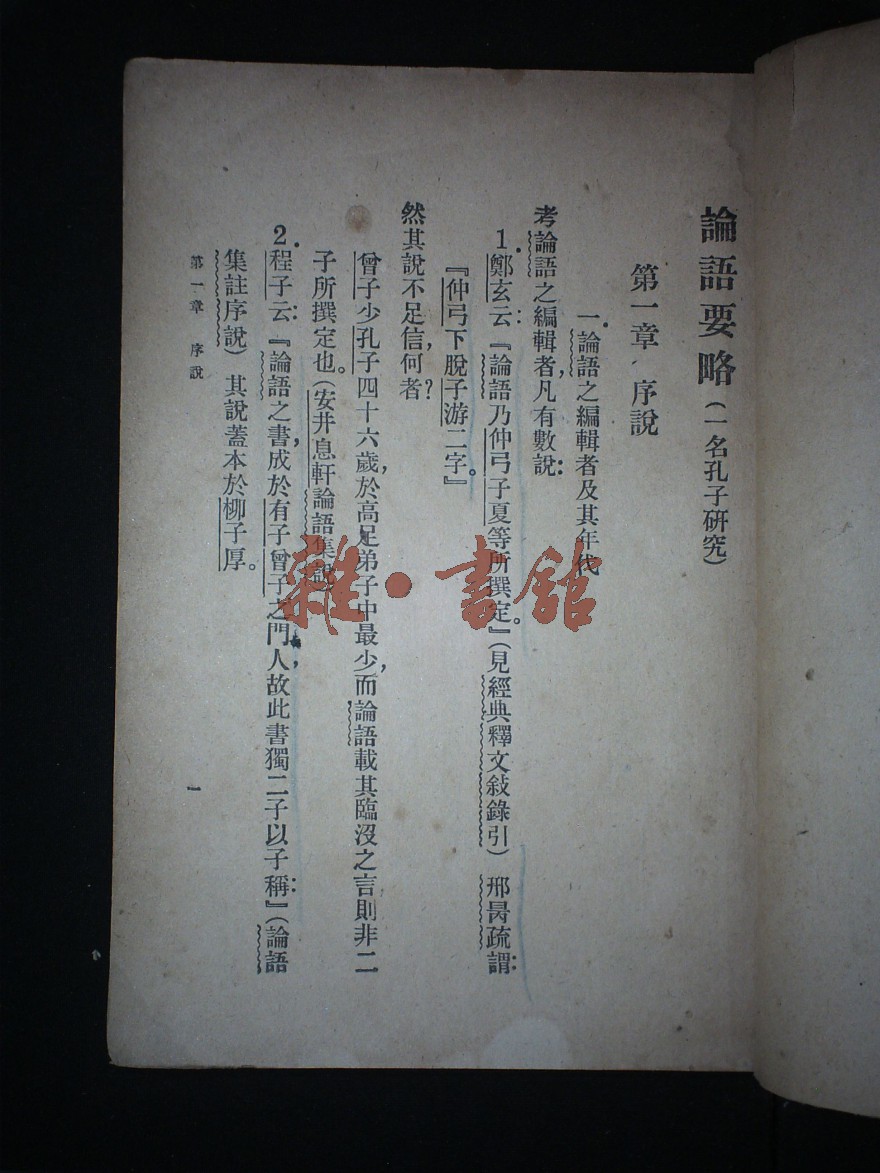 論語要略(一名孔子研究)
第一章 序說
一.論語之編輯者及其年代
考論語之編輯者,凡有數說:
1.鄭玄云:『論語乃仲弓子夏等所撰定。』(見經典釋文敍錄引)邢昺疏謂:
『仲弓下脫子游二字。』
然其說不足信,何者?
曾子少孔子四十六歲,於高足弟子中最少,而論語載其臨沒之言,則非二
子所撰定也。(安井息軒論語集說)
2.程子云:『論語之書,成於有子曾子之門人,故此書獨二子以子稱:』(論語
集註序說)其說蓋本於柳子厚。
第一章 序說
一
雜·書館